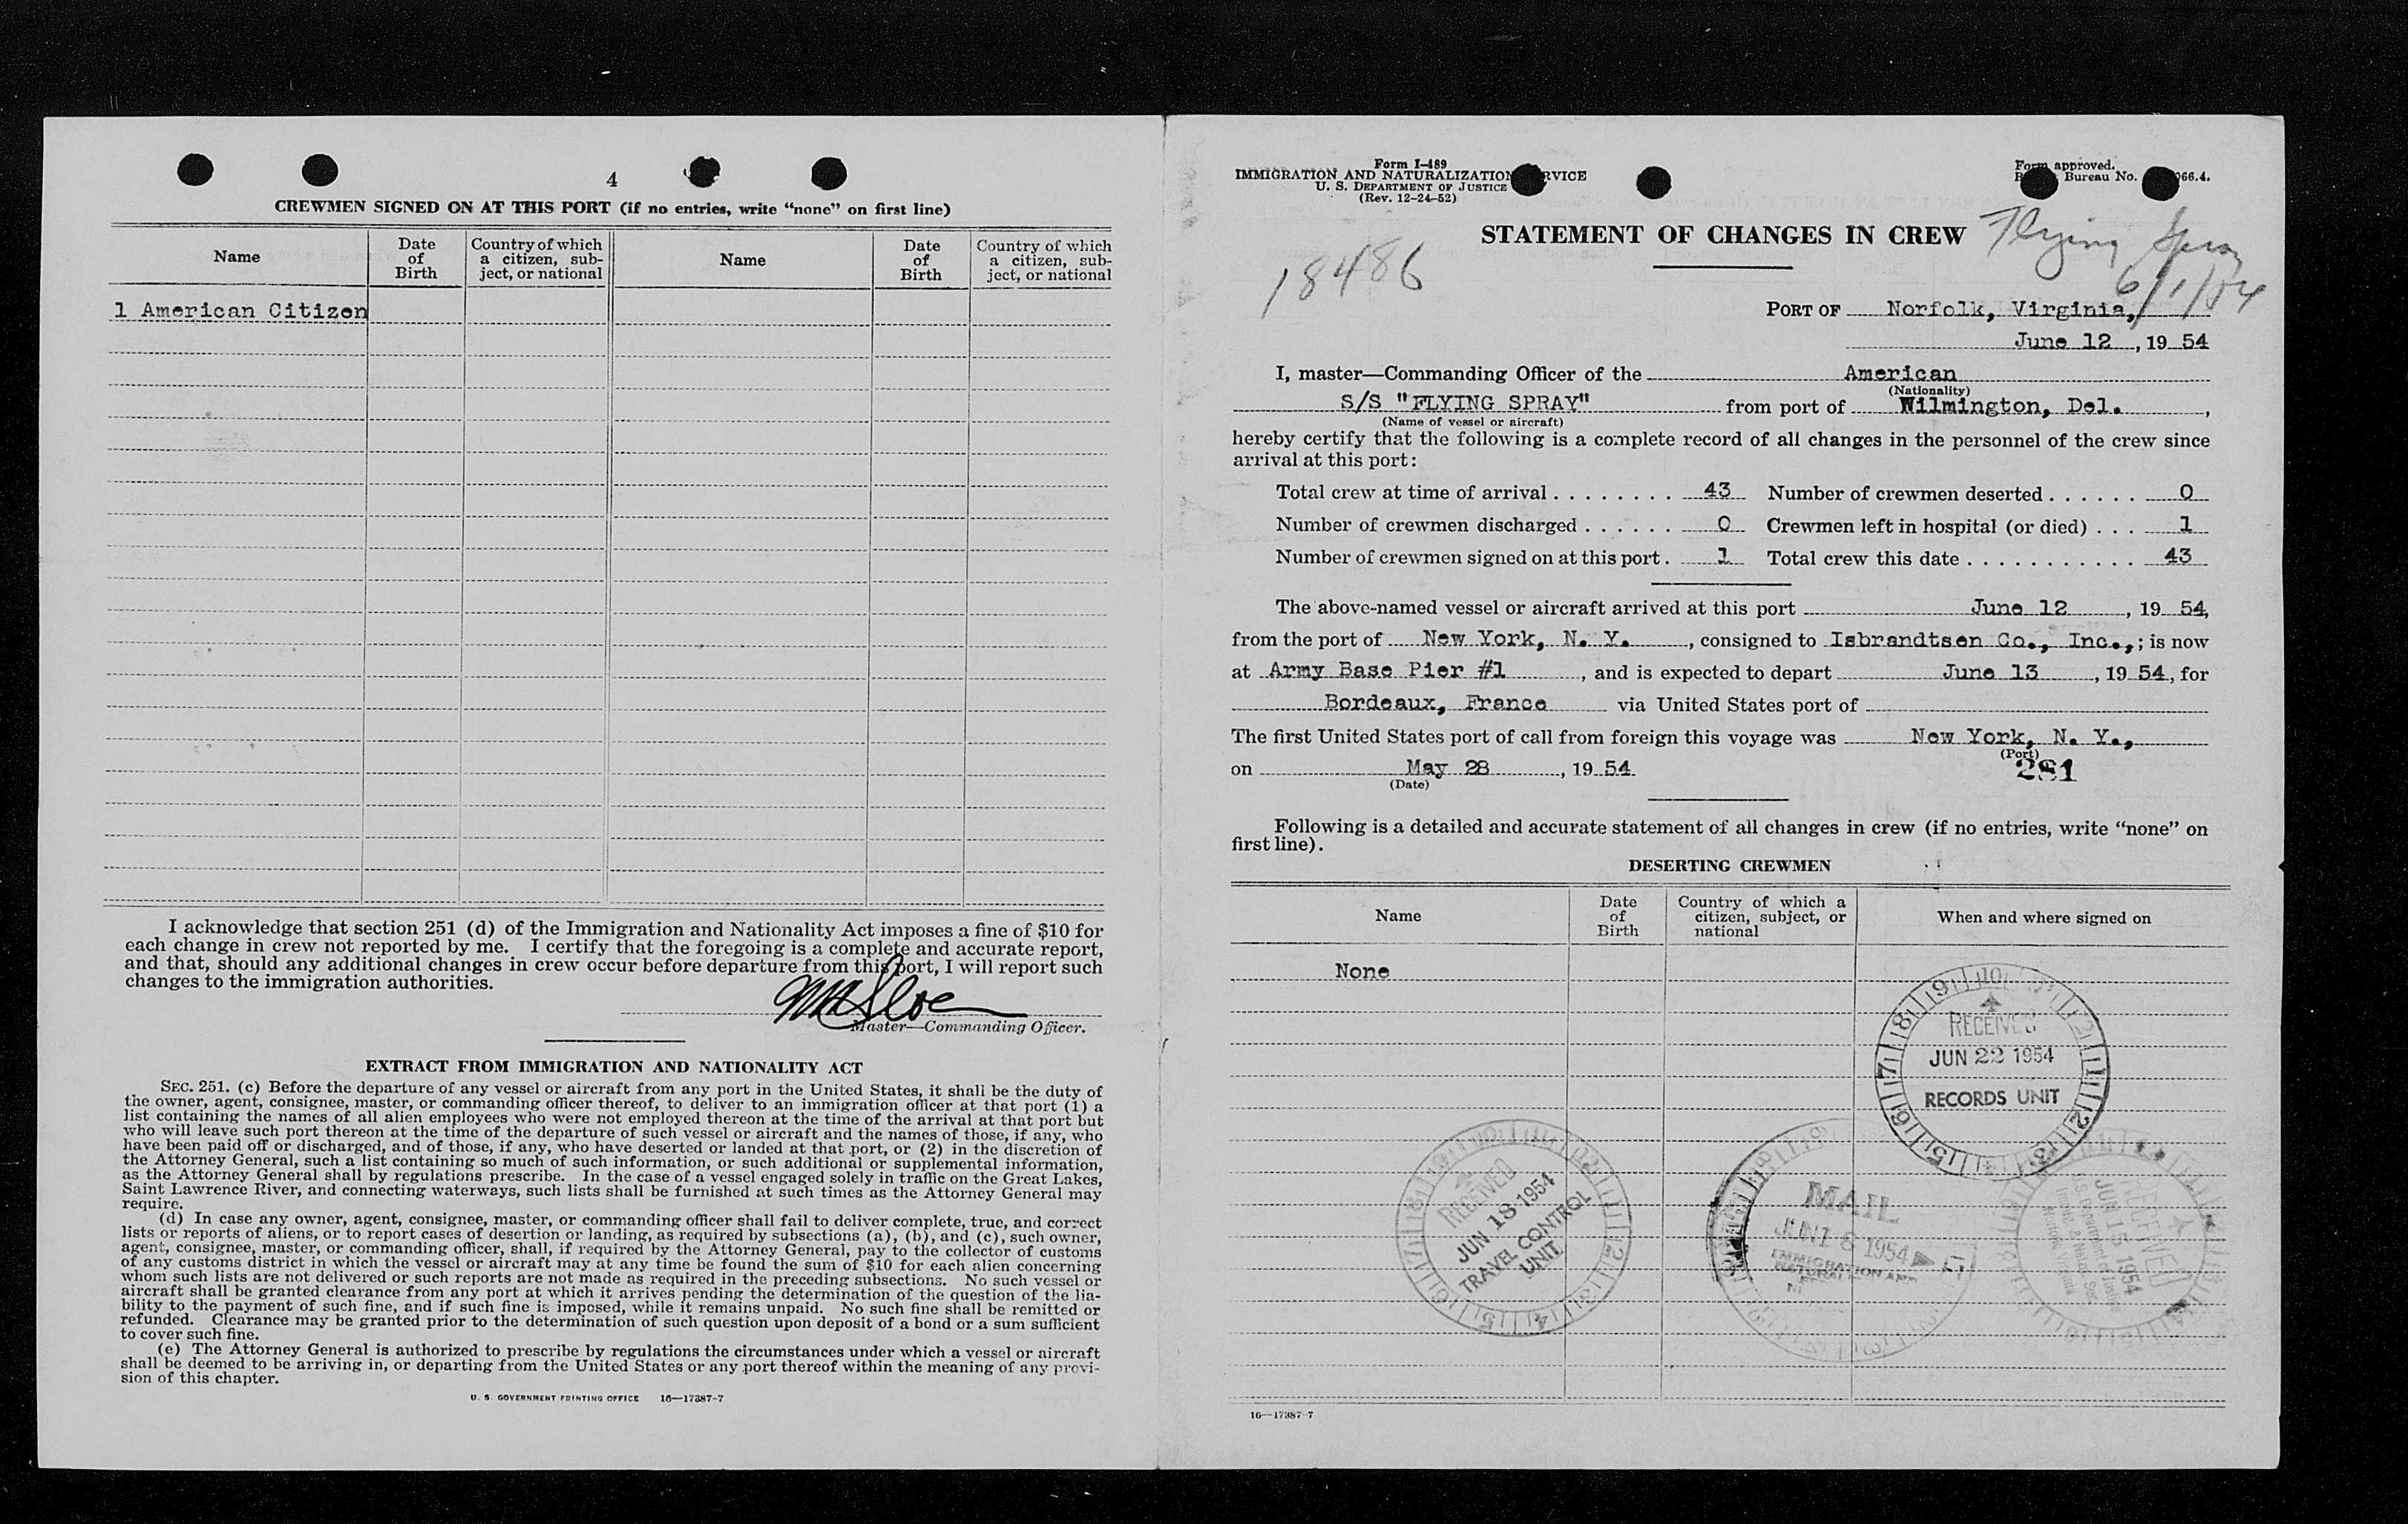 4
CREWMEN SIGNED ON AT THIS PORT (if no entries, write “none” on first line)
Name
Date of Birth
Country of which a citizen, subject, or national
Name
Date of Birth
Country of which a citizen, subject, or national
1 American Citizen
I acknowledge that section 251 (d) of the Immigration and Nationality Act imposes a fine of $10 for
each change in crew not reported by me. I certify that the foregoing is a complete and accurate report,
and that, should any additional changes in crew occur before departure from this port, I will report such
changes to the immigration authorities.
Master—Commanding Officer.
EXTRACT FROM IMMIGRATION AND NATIONALITY ACT
SEC. 251. (c) Before the departure of any vessel or aircraft from any port in the United States, it shall be the duty of
the owner, agent, consignee, master, or commanding officer thereof, to deliver to an immigration officer at that port (1) a
list containing the names of all alien employees who were not employed thereon at the time of the arrival at that port but
who will leave such port thereon at the time of the departure of such vessel or aircraft and the names of those, if any, who
have been paid off or discharged, and of those, if any, who have deserted or landed at that port, or (2) in the discretion of
the Attorney General, such a list containing so much of such information, or such additional or supplemental information,
as the Attorney General shall by regulations prescribe. In the case of a vessel engaged solely in traffic on the Great Lakes,
Saint Lawrence River, and connecting waterways, such lists shall be furnished at such times as the Attorney General may
require.
(d) In case any owner, agent, consignee, master, or commanding officer shall fail to deliver complete, true, and correct
lists or reports of aliens, or to report cases of desertion or landing, as required by subsections (a), (b), and (c), such owner,
agent, consignee, master, or commanding officer, shall, if required by the Attorney General, pay to the collector of customs
of any customs district in which the vessel or aircraft may at any time be found the sum of $10 for each alien concerning
whom such lists are not delivered or such reports are not made as required in the preceding subsections. No such vessel or
aircraft shall be granted clearance from any port at which it arrives pending the determination of the question of the lia-
bility to the payment of such fine, and if such fine is imposed, while it remains unpaid. No such fine shall be remitted or
refunded. Clearance may be granted prior to the determination of such question upon deposit of a bond or a sum sufficient
to cover such fine.
(e) The Attorney General is authorized to prescribe by regulations the circumstances under which a vessel or aircraft
shall be deemed to be arriving in, or departing from the United States or any port thereof within the meaning of any provi-
sion of this chapter.
U. S. GOVERNMENT PRINTING OFFICE 16—17387-7
Form I-489
IMMIGRATION AND NATURALIZATION SERVICE
U. S. DEPARTMENT OF JUSTICE
(Rev. 12-24-52)
Form approved.
Bureau No. 066.4.
STATEMENT OF CHANGES IN CREW
Flying Spray
6/1/54
18486
PORT OF Norfolk, Virginia,
June 12, 19 54
I, master—Commanding Officer of the American
(Nationality)
S/S "FLYING SPRAY" from port of Wilmington, Del.,
(Name of vessel or aircraft)
hereby certify that the following is a complete record of all changes in the personnel of the crew since
arrival at this port:
Total crew at time of arrival . . . . . . . . 43 Number of crewmen deserted . . . . . . 0
Number of crewmen discharged . . . . . . 0 Crewmen left in hospital (or died) . . . 1
Number of crewmen signed on at this port . 1 Total crew this date . . . . . . . . . . . 43
The above-named vessel or aircraft arrived at this port June 12, 19 54,
from the port of New York, N. Y., consigned to Isbrandtsen Co., Inc.,; is now
at Army Base Pier #1, and is expected to depart June 13, 19 54, for
Bordeaux, France via United States port of
The first United States port of call from foreign this voyage was New York, N. Y.,
(Port)
on May 28, 19 54
(Date)
281
Following is a detailed and accurate statement of all changes in crew (if no entries, write “none” on
first line).
DESERTING CREWMEN
Name
Date of Birth
Country of which a citizen, subject, or national
When and where signed on
None
RECEIVED
JUN 22 1954
RECORDS UNIT
RECEIVED
JUN 18 1954
TRAVEL CONTROL
UNIT
MAIL
1954
IMMIGRATION AND
RECEIVED
JUN 15 1954
U.S. Department of Justice
Immig. & Natzn. Ser.
Norfolk, Virginia
16—17387-7